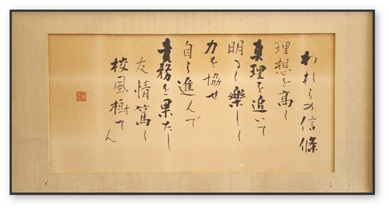 われらの信條
理想を高く
真理を追いて
明るく樂しく
力を協せ
自ら進んで
責務を果たし
友情篤く
校風樹てん